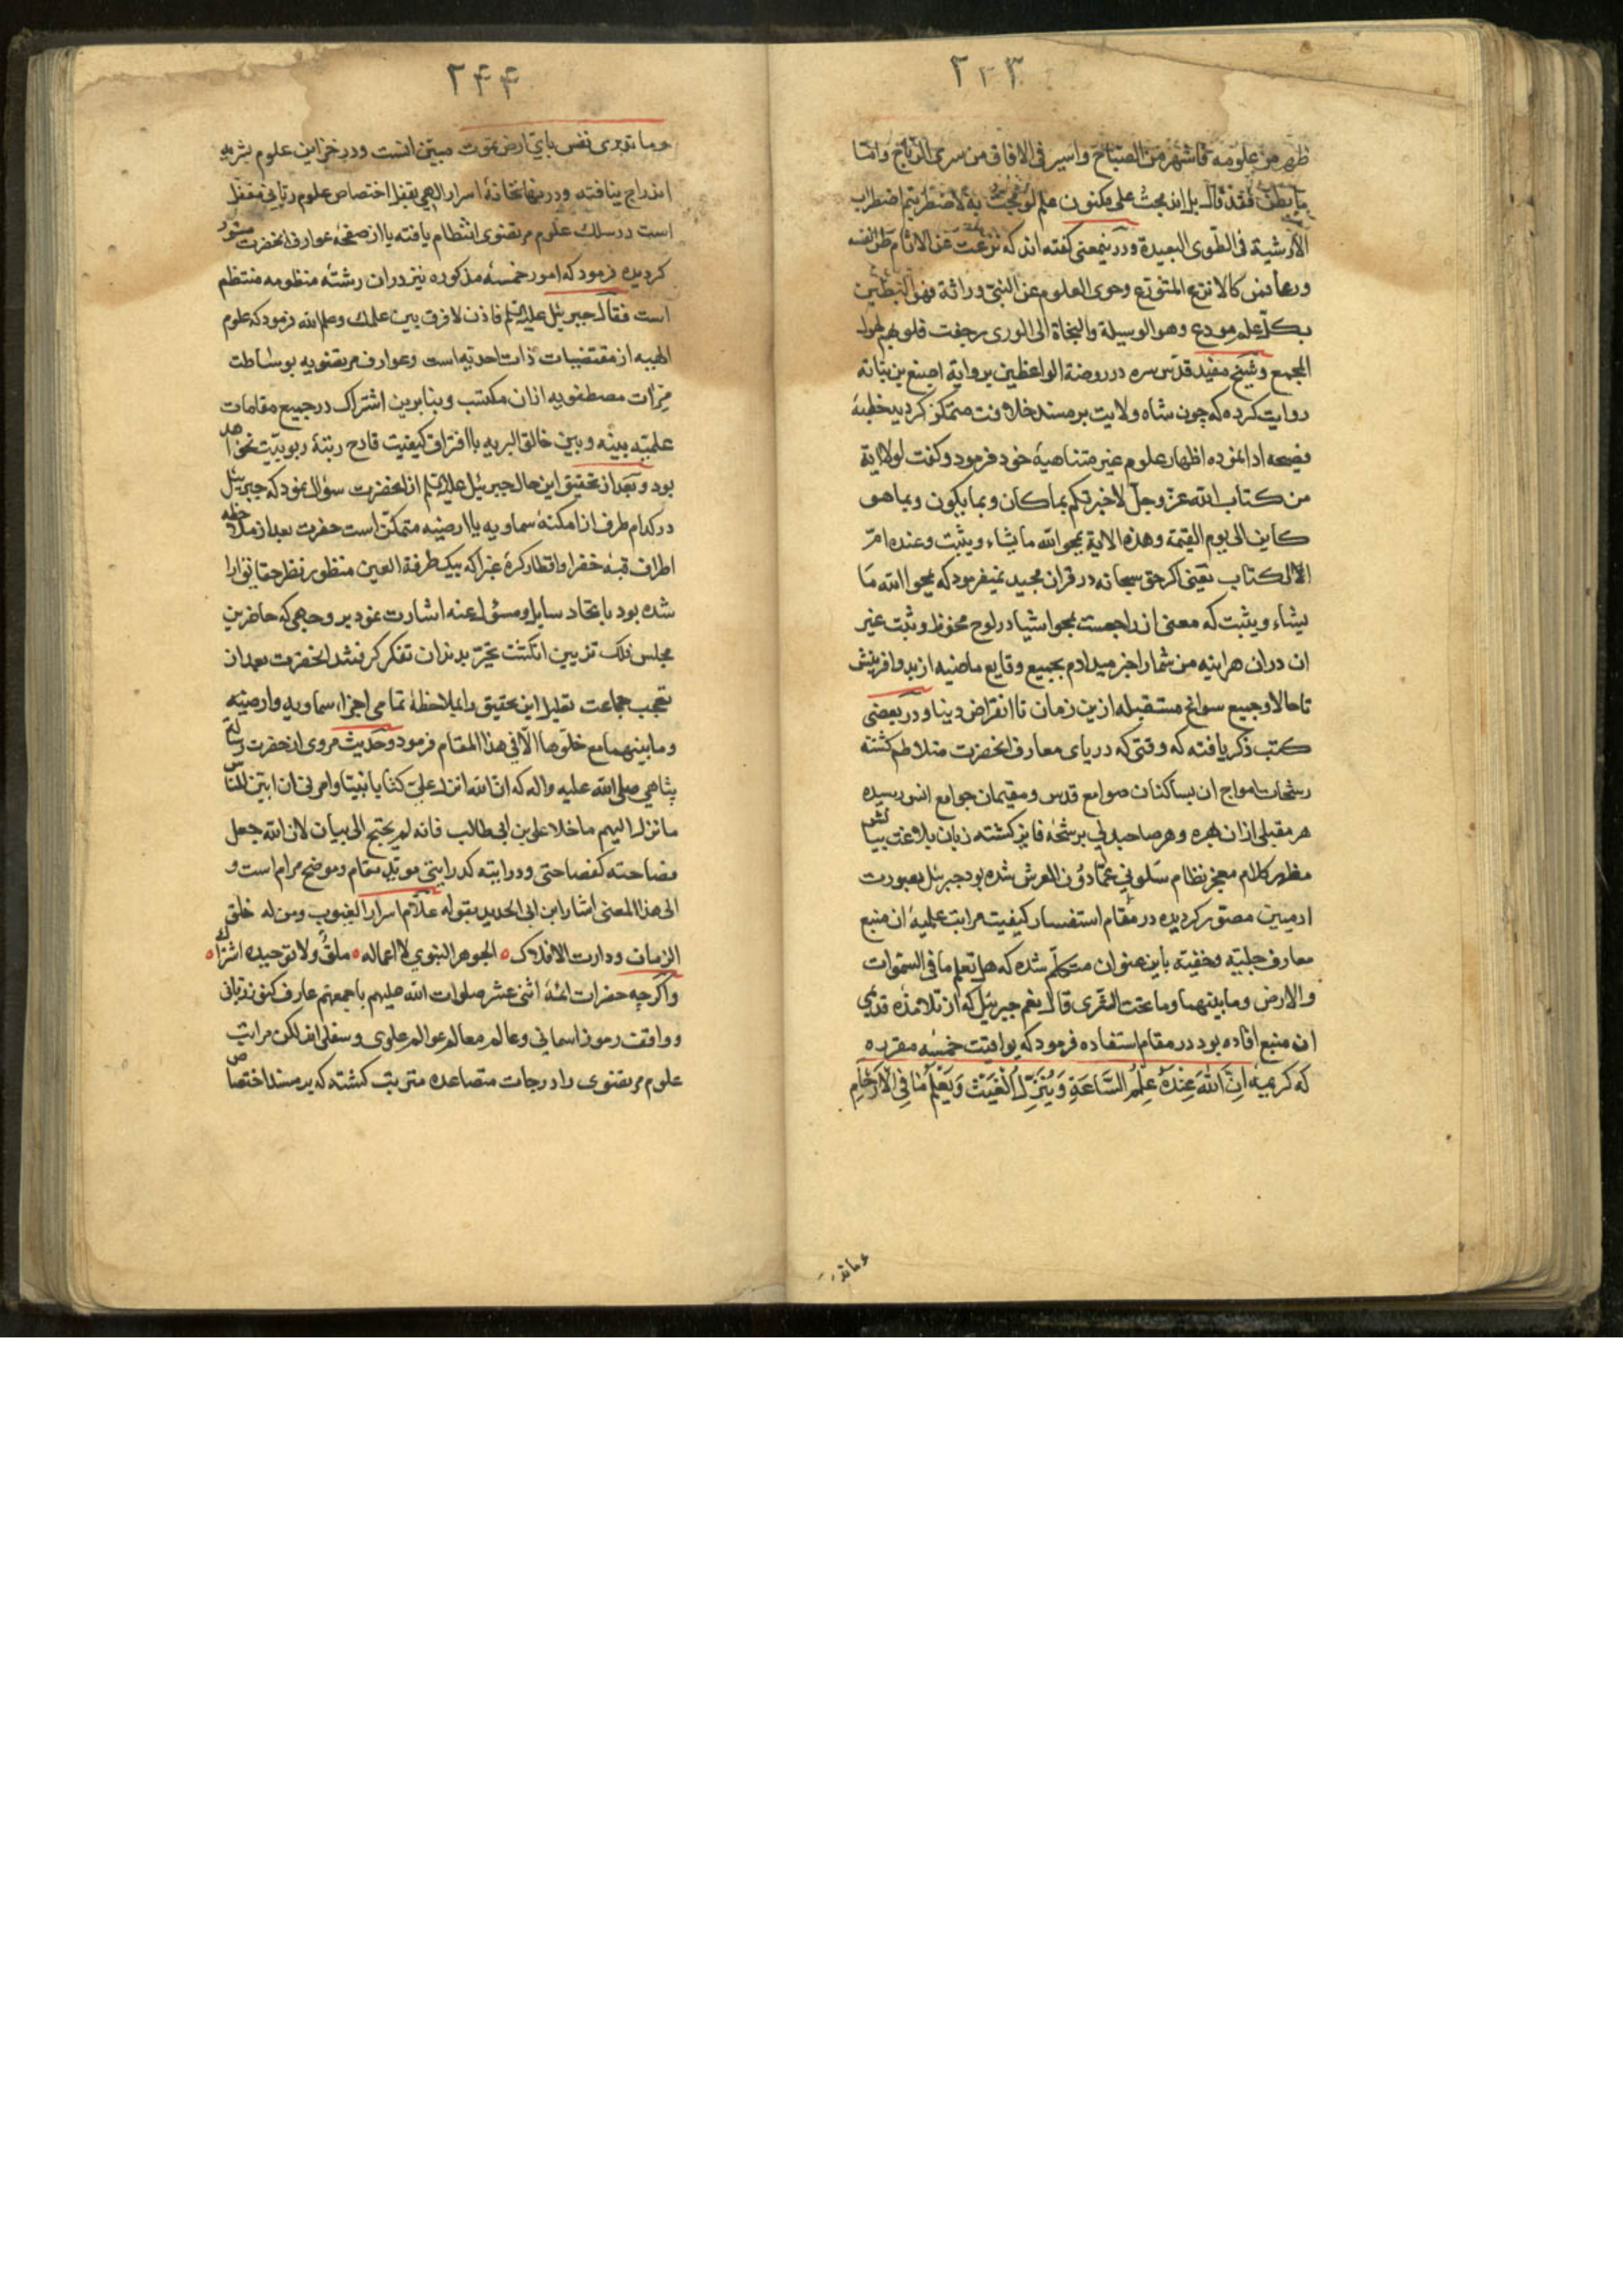 ۲۴۳
ظهر من علومه فاشهر من الصباح واسير فی الافاق من سری الریاح واما
ما بطن فقد قال بل اندمجت علی مکنون علم لو بحت به لاضطربتم اضطراب
الارشیة فی الطوی البعیدة ودرینمعنی کفته اند که نزعت عن الاثام طرا نفسه
ورعا فمن کالانزع المتورع وحوی العلوم عن النبی وراثة فهو البطین
بکل علم مودع وهو الوسیلة والنجاة الی الوری رجفت قلوبهم لهول
المجمع وشیخ مفید قدس سره در روضة الواعظین بروایة اصبغ بن نباته
روایت کرده که چون شاه ولایت بر مسند خلافت متمکن کردید خطبهٔ
فصیحه ادا نموده اظهار علوم غیر متناهیهٔ خود فرمود وکفت لولا ایة
من کتاب الله عز وجل لاخبرتکم بما کان وبما یکون وبما هو
کاین الی یوم القیمة وهذه الایة یمحو الله ما یشاء ویثبت وعنده ام
الکتاب یعنی اکر حق سبحانه در قران مجید نمیفرمود که یمحوا الله ما
یشاء ویثبت که معنی ان راجعست بمحو اشیا در لوح محفوظ وثبت غیر
ان دران هراینه من شما را خبر میدادم بجمیع وقایع ماضیه از بدو افرینش
تا حال وجمیع سوانح مستقبله ازین زمان تا انقراض دنیا ودر بعضی
کتب ذکر یافته که وقتی که دریای معارف انحضرت متلاطم کشته
رشحات امواج ان بساکنان صوامع قدس ومقیمان جوامع انس رسیده
هر مقبلی ازان بهره وهر صاحبدلی برشحهٔ فایز کشته زبان بلاغت بیانش
مظهر کلام معجز نظام سلونی عما دون العرش شده بود جبرئیل بصورت
ادمیین مصور کردیده در مقام استفسار کیفیت مراتب علمیهٔ ان منبع
معارف جلیه وخفیه باین عنوان متکلم شده که هل تعلم ما فی السموات
والارض وما بینهما وما تحت الثری قال نعم جبرئیل که از تلامذه قدیمی
ان منبع افاده بود در مقام استفاده فرمود که یواقیت خمسه مقرره
که کریمه اِنَّ اللهَ عِندَهُ عِلمُ السَّاعَةِ وَیُنَزِّلُ الغَیثَ وَیَعلَمُ مَا فِی الاَرحَامِ
وما تدر
۲۴۴
وما تدری نفس بای ارض تموت مبین انست ودر خزاین علوم بشریه
اندراج نیافته ودر نهانخانهٔ اسرار الهی بقفل اختصاص علوم ربانی مقفل
است در سلک علوم مرتضوی انتظام یافته یا از صفحهٔ عوارف انحضرت مستور
کردیده فرمود که امور خمسهٔ مذکوره نیز دران رشتهٔ منظومه منتظم
است فقال جبرئیل علیه السلم فاذن لا فرق بین علمک وعلم الله فرمود که علوم
الهیه از مقتضیات ذات احدیه است وعوارف مرتضویه بوساطت
مرات مصطفویه ازان مکتسب وبنابرین اشتراک در جمیع مقامات
علمیه بینه وبین خالق البریه با افتراق کیفیت قادح رتبهٔ ربوبیت نخواهد
بود وبعد از تحقیق این حال جبرئیل علیه السلم از انحضرت سؤال نمود که جبرئیل
در کدام طرف از امکنهٔ سماویه یا ارضیه متمکن است حضرت بعد از ملاحظه
اطراف قبهٔ خضرا واقطار کرهٔ غبرا که بیک طرفة العین منظور نظر حقایق ارا
شده بود باتحاد سایل ومسؤل عنه اشارت نمود بر وجهی که حاضرین
مجلس فلک تزیین انکشت تحیر بدندان تفکر کرفتند انحضرت بعد از
تعجب جماعت تعلیل این تحقیق را بملاحظهٔ تمامی اجزاء سماویه وارضیه
وما بینهما مع خلوها الا فی هذا المقام فرمود وحدیث مروی از حضرت رسالت
پناهی صلی الله علیه واله که ان الله انزل علی کتابا مبینا وامرنی ان ابین للناس
ما نزل الیهم ما خلا علی بن ابی طالب فانه لم یحتج الی بیان لان الله جعل
فصاحته کفصاحتی ودرایته کدرایتی موید مقام وموضح مرام است و
الی هذا المعنی اشار ابن ابی الحدید بقوله علام اسرار الغیوب ومن له خلق
الزمان ودارت الافلاک ه الجوهر النبوی لا اعماله ه ملق ولا توحیده اشراک ه
واکرچه حضرات ائمهٔ اثنی عشر صلوات الله علیهم باجمعهم عارف کنوز ربانی
وواقف رموز اسمانی وعالم معالم عوالم علوی وسفلی اند لکن مراتب
علوم مرتضوی را درجات متصاعده مترتب کشته که بر مسند اختصاص